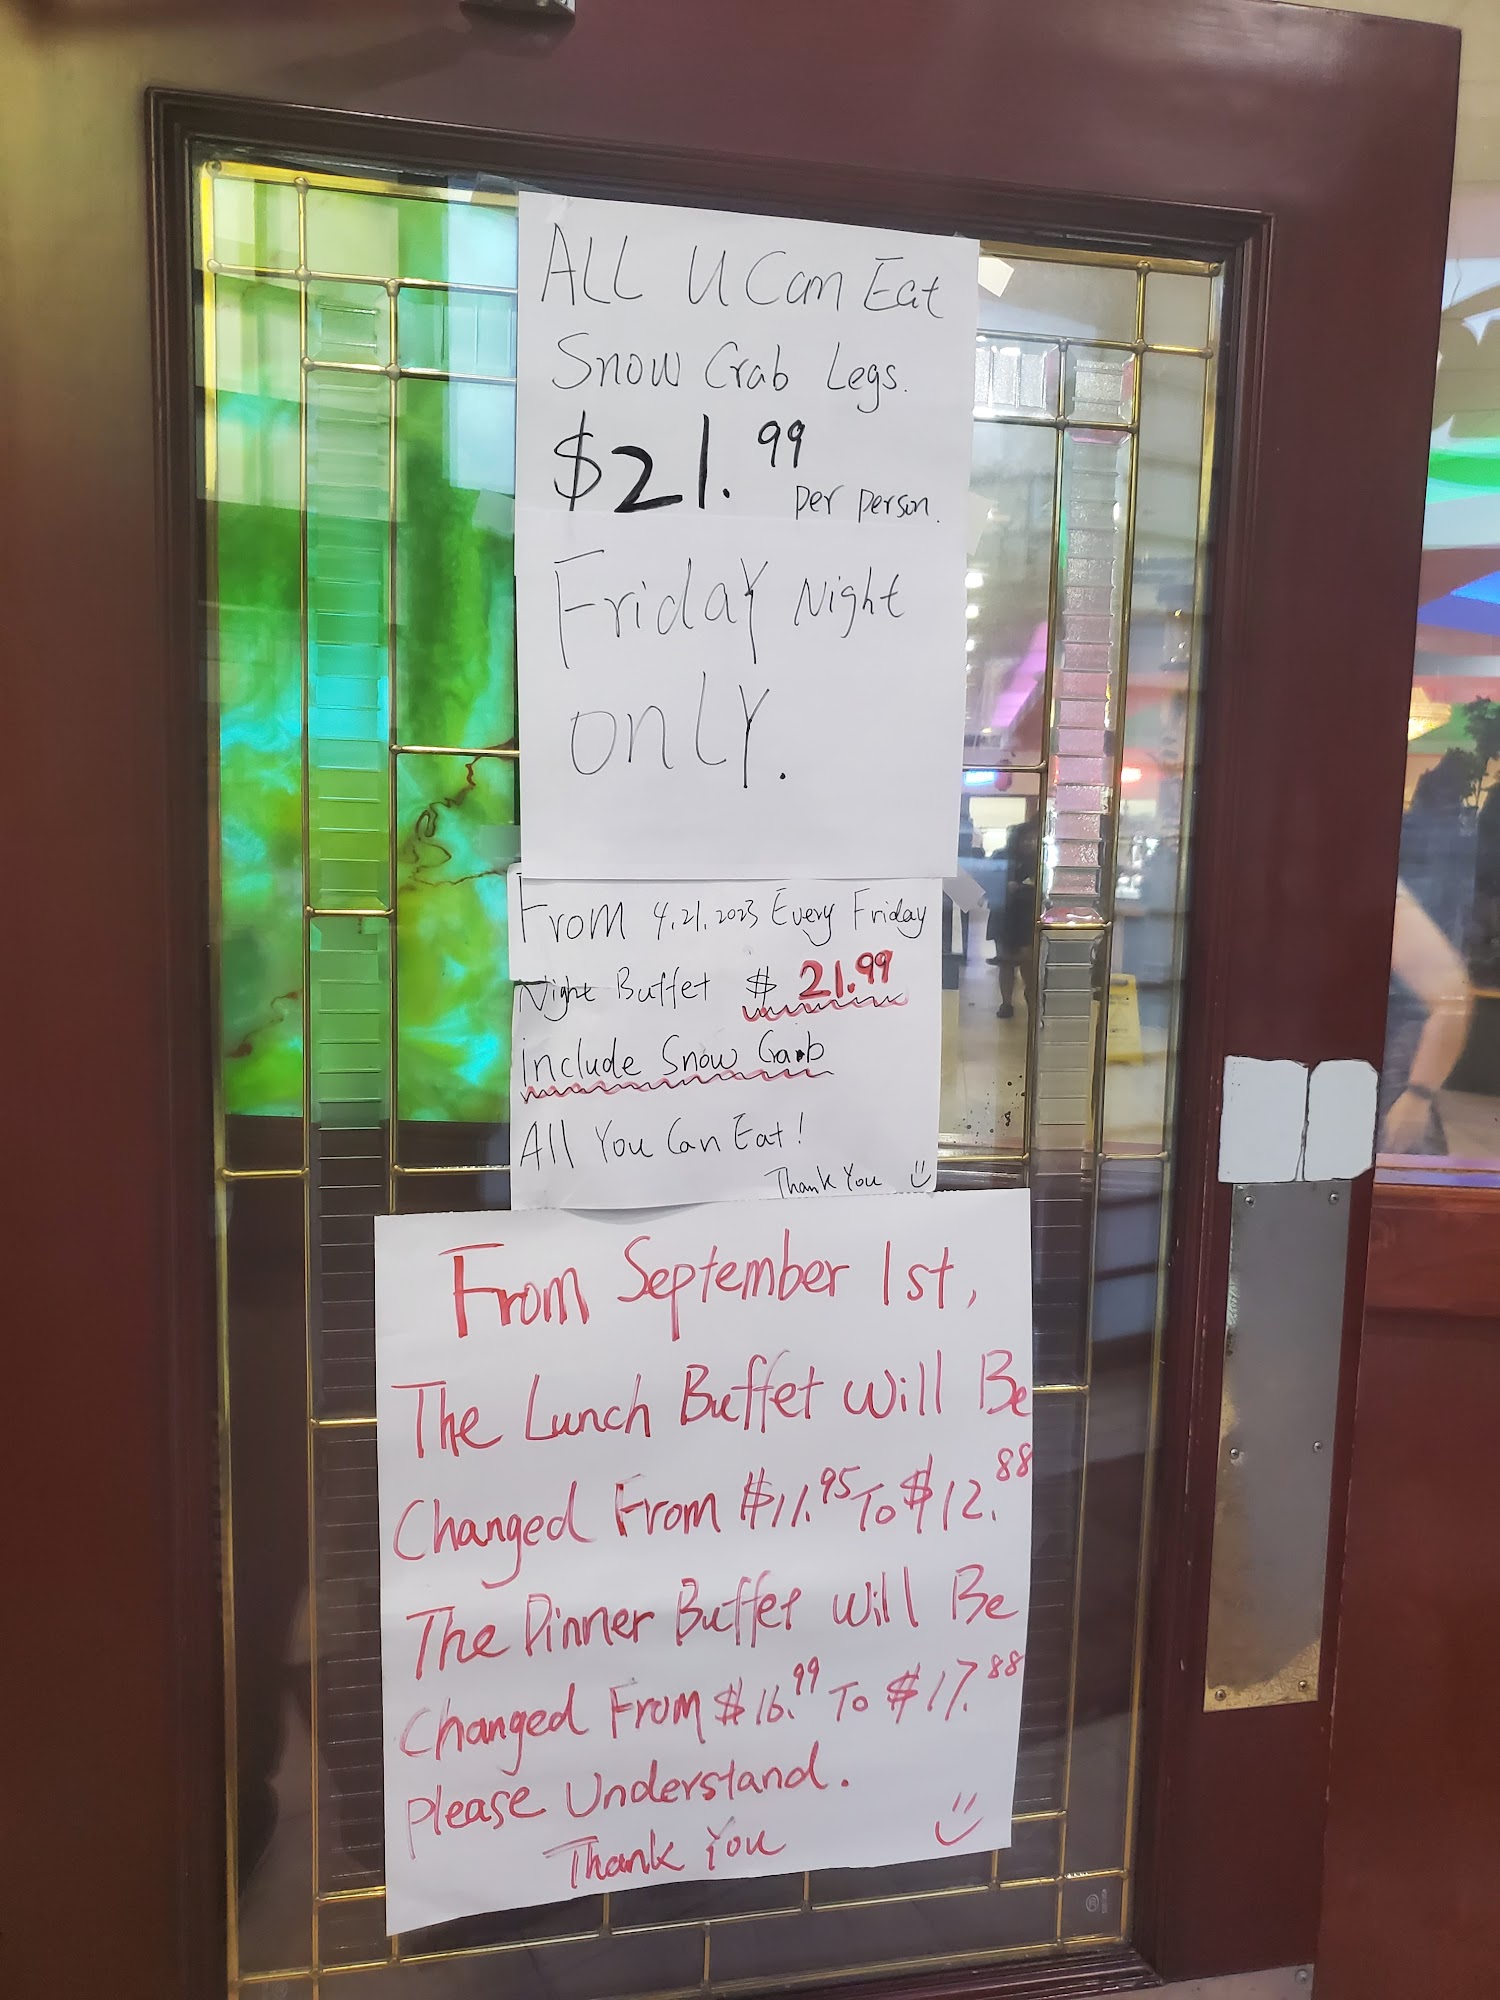 ALL U Can Eat
Snow Crab Legs.
$21.99
per person.
Friday Night
ONLY.
From 4.21.2023 Every Friday
Night Buffet $ 21.99
include Snow Carb
All You Can Eat!
Thank You
From September 1st,
The Lunch Buffet Will Be
Changed From $11.95 To $12.88
The Dinner Buffet Will Be
Changed From $16.99 To $17.88
Please Understand.
Thank You